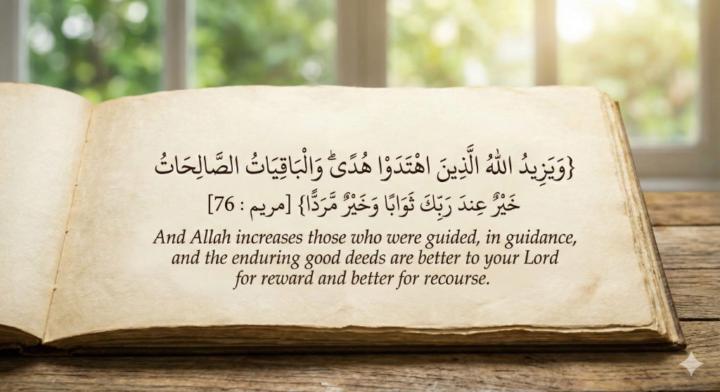 {وَيَزِيدُ اللَّهُ الَّذِينَ اهْتَدَوْا هُدًى ۗ وَالْبَاقِيَاتُ الصَّالِحَاتُ
خَيْرٌ عِندَ رَبِّكَ ثَوَابًا وَخَيْرٌ مَّرَدًّا} [مريم : 76]
And Allah increases those who were guided, in guidance,
and the enduring good deeds are better to your Lord
for reward and better for recourse.